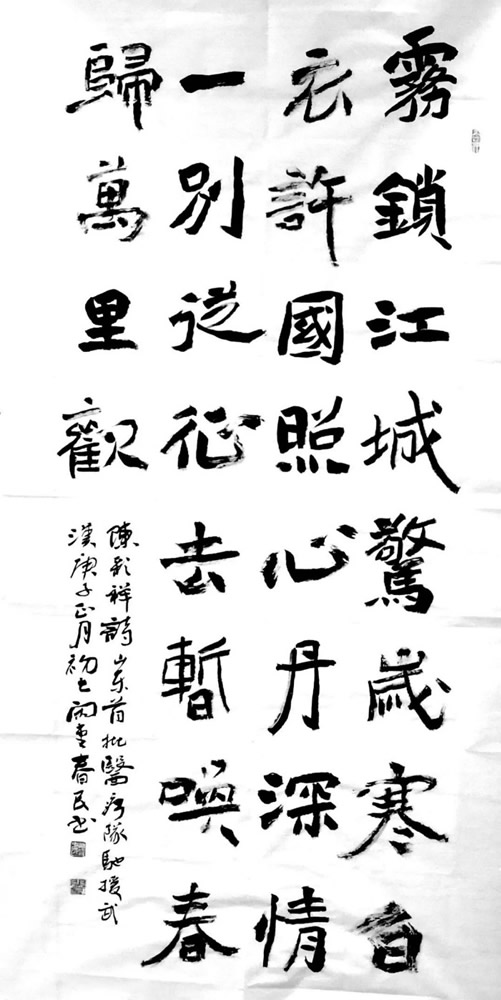 霧鎖江城驚歲寒白
衣許國照心丹深情
一別從征去暫喚春
歸萬里觀
陳彩祥詩山東首批醫療隊馳援武
漢庚子正月初七春民书